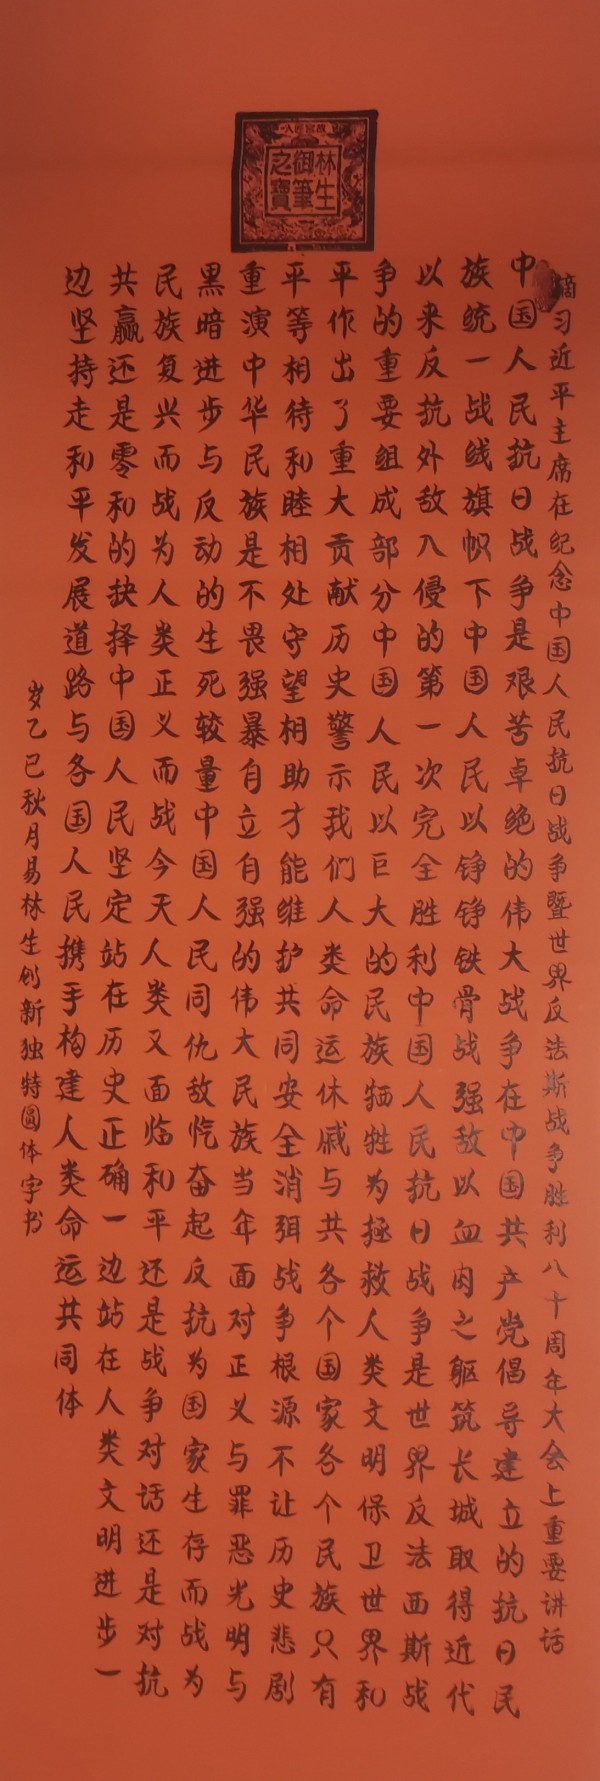 林生
御筆
之寶
摘习近平主席在纪念中国人民抗日战争暨世界反法斯战争胜利八十周年大会上重要讲话
中国人民抗日战争是艰苦卓绝的伟大战争在中国共产党倡导建立的抗日民
族统一战线旗帜下中国人民以铮铮铁骨战强敌以血肉之躯筑长城取得近代
以来反抗外敌入侵的第一次完全胜利中国人民抗日战争是世界反法西斯战
争的重要组成部分中国人民以巨大的民族牺牲为拯救人类文明保卫世界和
平作出了重大贡献历史警示我们人类命运休戚与共各个国家各个民族只有
平等相待和睦相处守望相助才能维护共同安全消弭战争根源不让历史悲剧
重演中华民族是不畏强暴自立自强的伟大民族当年面对正义与罪恶光明与
黑暗进步与反动的生死较量中国人民同仇敌忾奋起反抗为国家生存而战为
民族复兴而战为人类正义而战今天人类又面临和平还是战争对话还是对抗
共赢还是零和的抉择中国人民坚定站在历史正确一边站在人类文明进步一
边坚持走和平发展道路与各国人民携手构建人类命运共同体
岁乙巳秋月易林生创新独特圆体字书